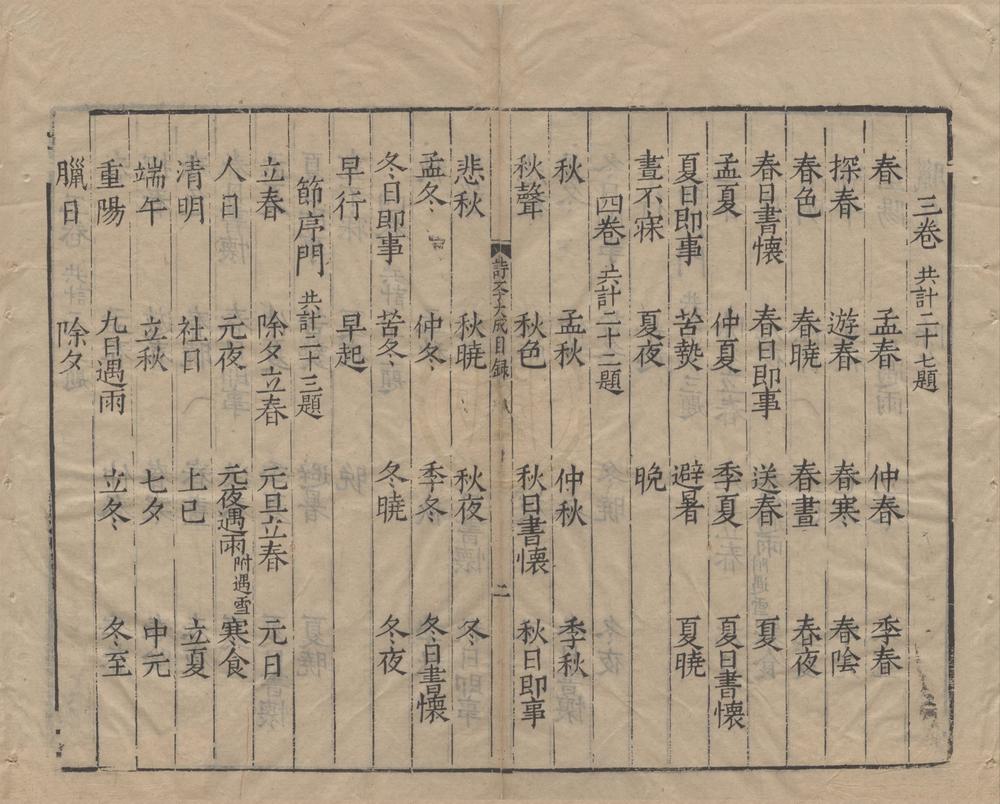 三卷 共計二十七題
春 孟春 仲春 季春
探春 遊春 春寒 春陰
春色 春曉 春晝 春夜
春日書懷 春日即事 送春 夏
孟夏 仲夏 季夏 夏日書懷
夏日即事 苦熱 避暑 夏曉
晝不寐 夏夜 晚
四卷 共計二十二題
秋 孟秋 仲秋 季秋
秋聲 秋色 秋日書懷 秋日即事
詩學大成目錄 二
悲秋 秋曉 秋夜 冬
孟冬 仲冬 季冬 冬日書懷
冬日即事 苦冬 冬曉 冬夜
早行 早起
節序門 共計二十三題
立春 除夕立春 元旦立春 元日
人日 元夜 元夜遇雨附遇雪 寒食
清明 社日 上巳 立夏
端午 立秋 七夕 中元
重陽 九日遇雨 立冬 冬至
臘日 除夕